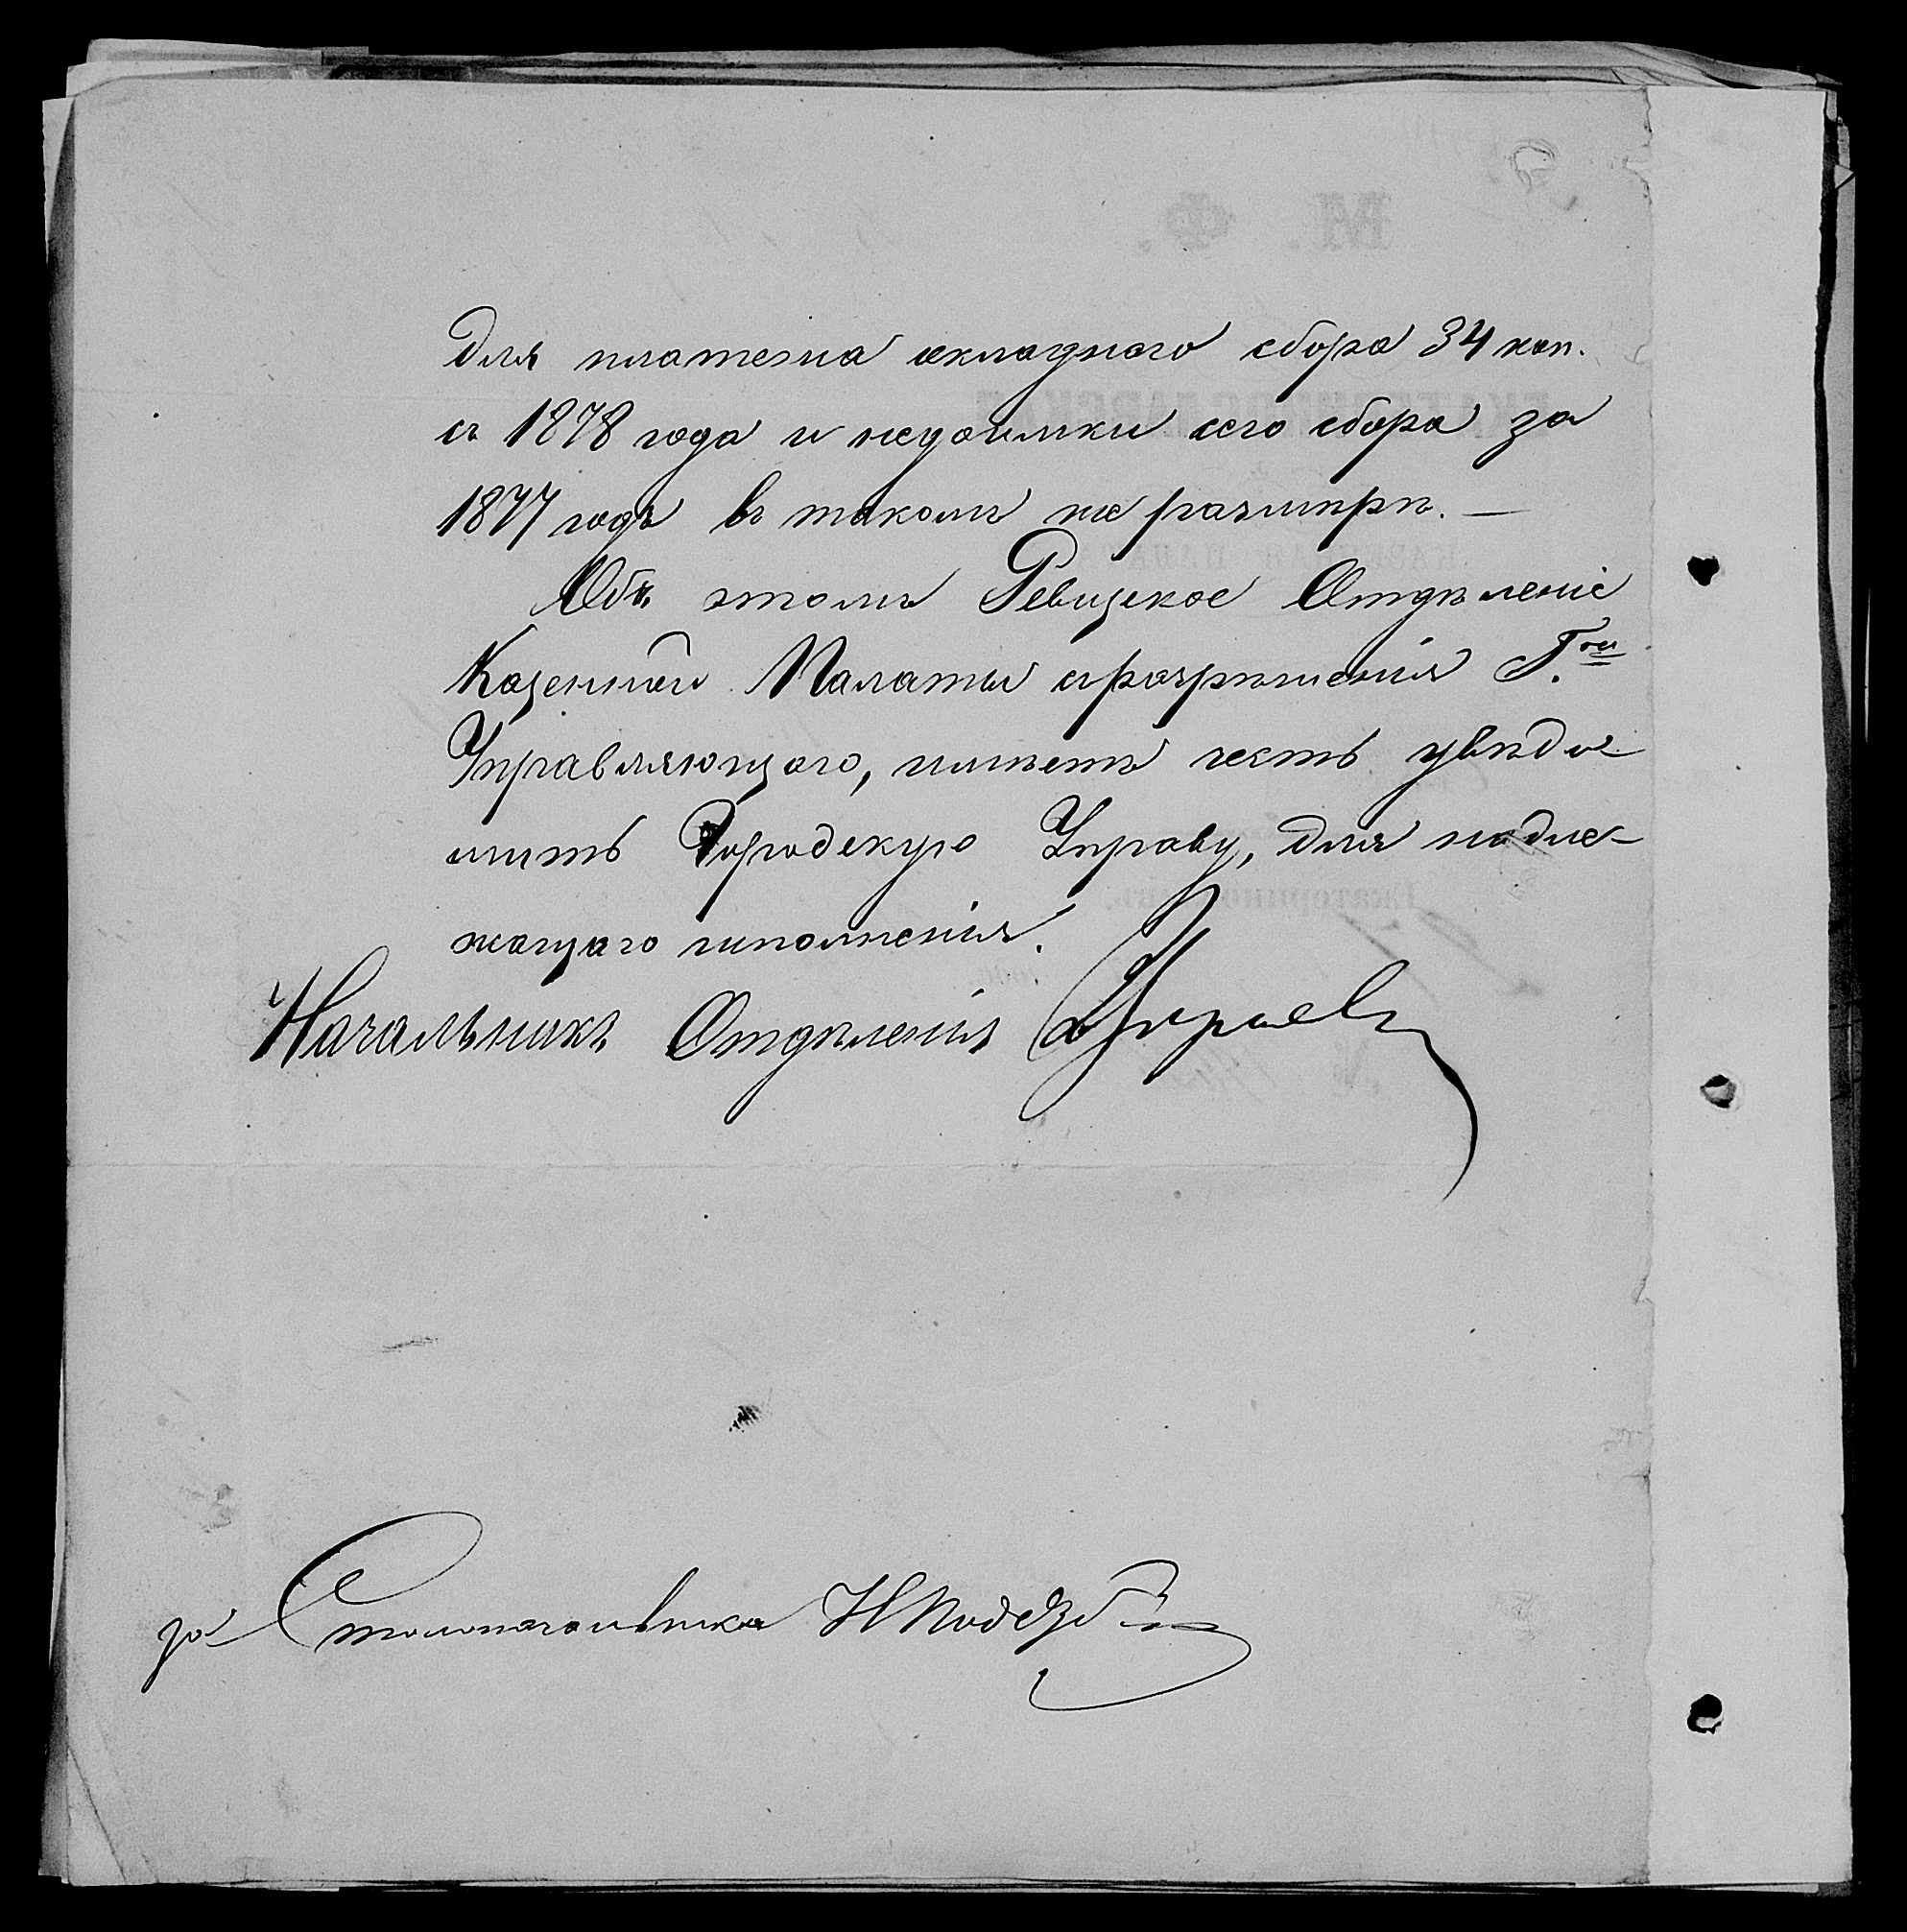 для платежа окладнаго сбора 34 коп.
съ 1878 года и недоимки сего сбора за
1877 годъ въ такомъ же размѣрѣ. —
Объ этомъ Ревизское Отдѣленіе
Казенной Палаты съ разрѣшенія Г.на
Управляющаго, имѣетъ честь увѣдо-
мить Городскую Управу, для надле-
жащаго исполненія.
Начальникъ Отдѣленія
за Столоначальника Н